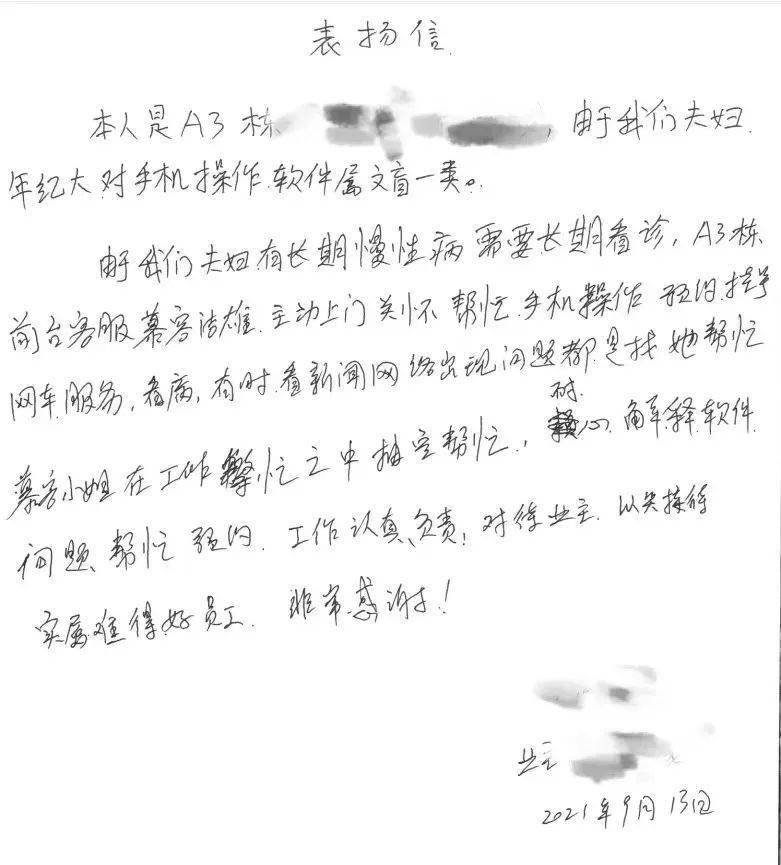 表扬信
本人是A3栋 ,由于我们夫妇
年纪大对手机操作软件属文盲一类。
由于我们夫妇有长期慢性病需要长期看诊,A3栋
前台客服慕容洁雄主动上门关怀帮忙手机操作预约
网车服务,看病,有时看新闻网络出现问题都是找她帮忙
慕容小姐在工作繁忙之中抽空帮忙,耐心解释软件
问题、帮忙预约.工作认真、负责,对待业主以失接待
实属难得好员工.非常感谢!
业主
2021年9月13日